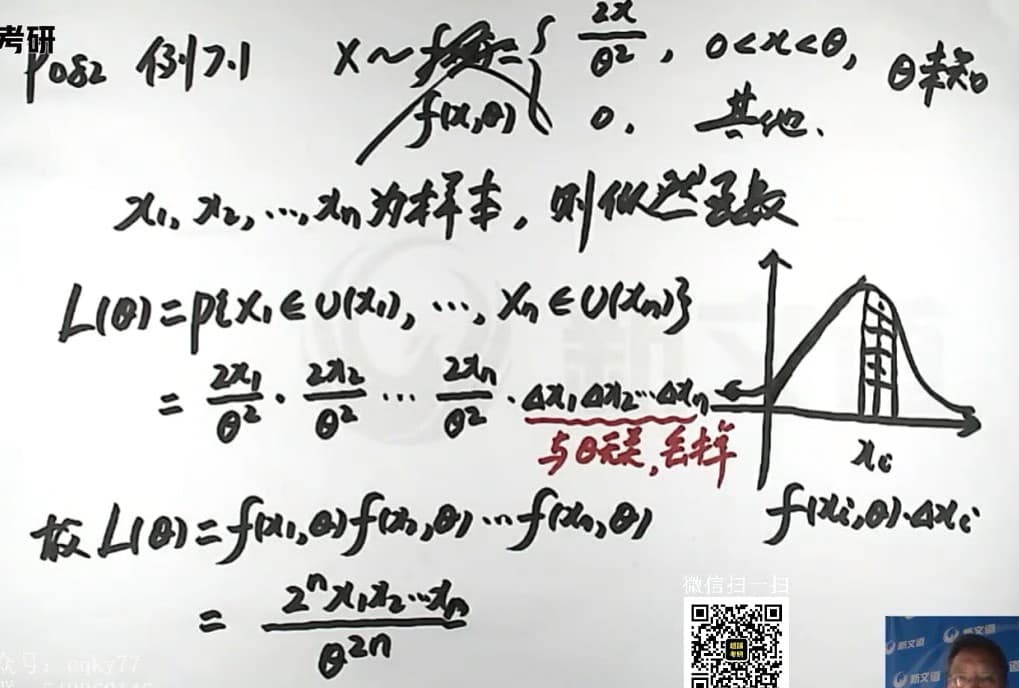 考研
P082 例7.1 X~f(x,θ)={ 2x/θ², 0<x<θ, θ未知
0, 其他.
x₁, x₂, …, xₙ为样本, 则似然函数
L(θ)=P{X₁∈U(x₁), …, Xₙ∈U(xₙ)}
= 2x₁/θ² · 2x₂/θ² … 2xₙ/θ² · Δx₁Δx₂…Δxₙ
与θ无关, 丢掉
xᵢ
f(xᵢ,θ)·Δxᵢ
故 L(θ)=f(x₁,θ)f(x₂,θ)…f(xₙ,θ)
= 2ⁿx₁x₂…xₙ/θ²ⁿ
微信扫一扫
众号: qqky77
新文道
新文道
新文道